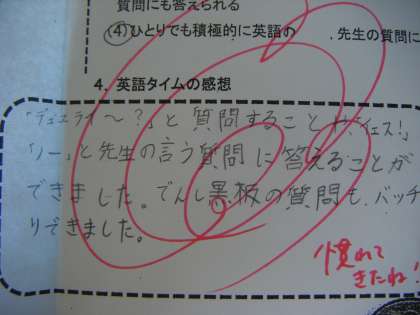 質問にも答えられる
(4)ひとりでも積極的に英語の 、先生の質問に
4. 英語タイムの感想
「デュユライ〜?」と質問することや、「イエス!」
「ノー」と先生の言う質問に答えることが
できました。でんし黒板の質問も、バッチ
りできました。
慣れて
きたね!